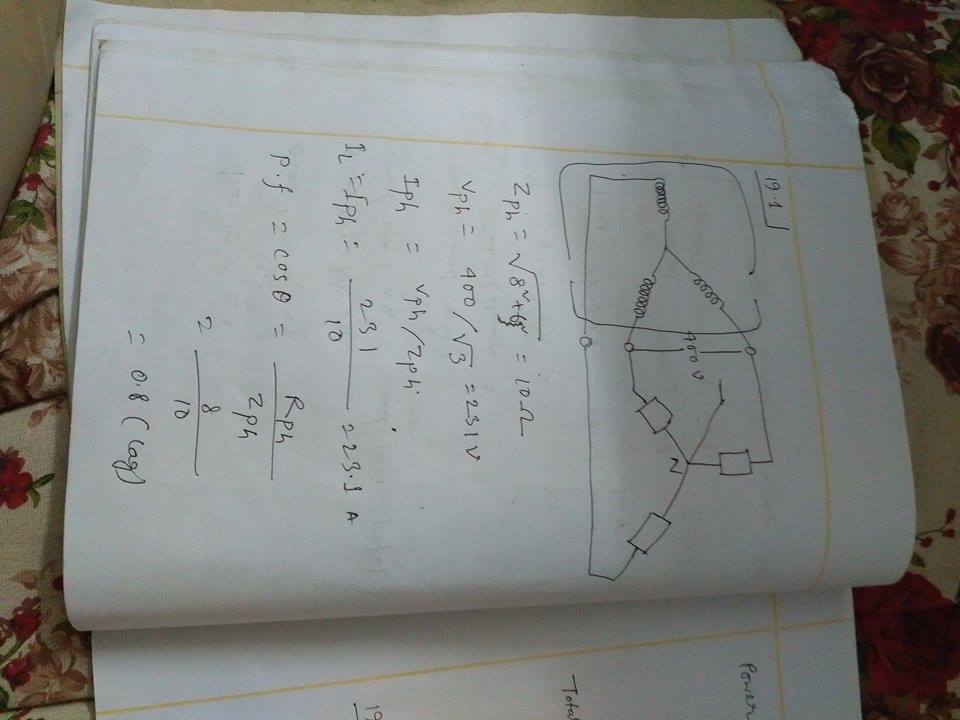 19.1
400 V
N
Zph = √8²+6² = 10Ω
Vph = 400/√3 = 231V
Iph = Vph/Zph
IL = Iph = 231/10 = 23.1 A
P.f = cosθ = Rph/Zph
= 8/10
= 0.8 (lag)
Power
Total
19